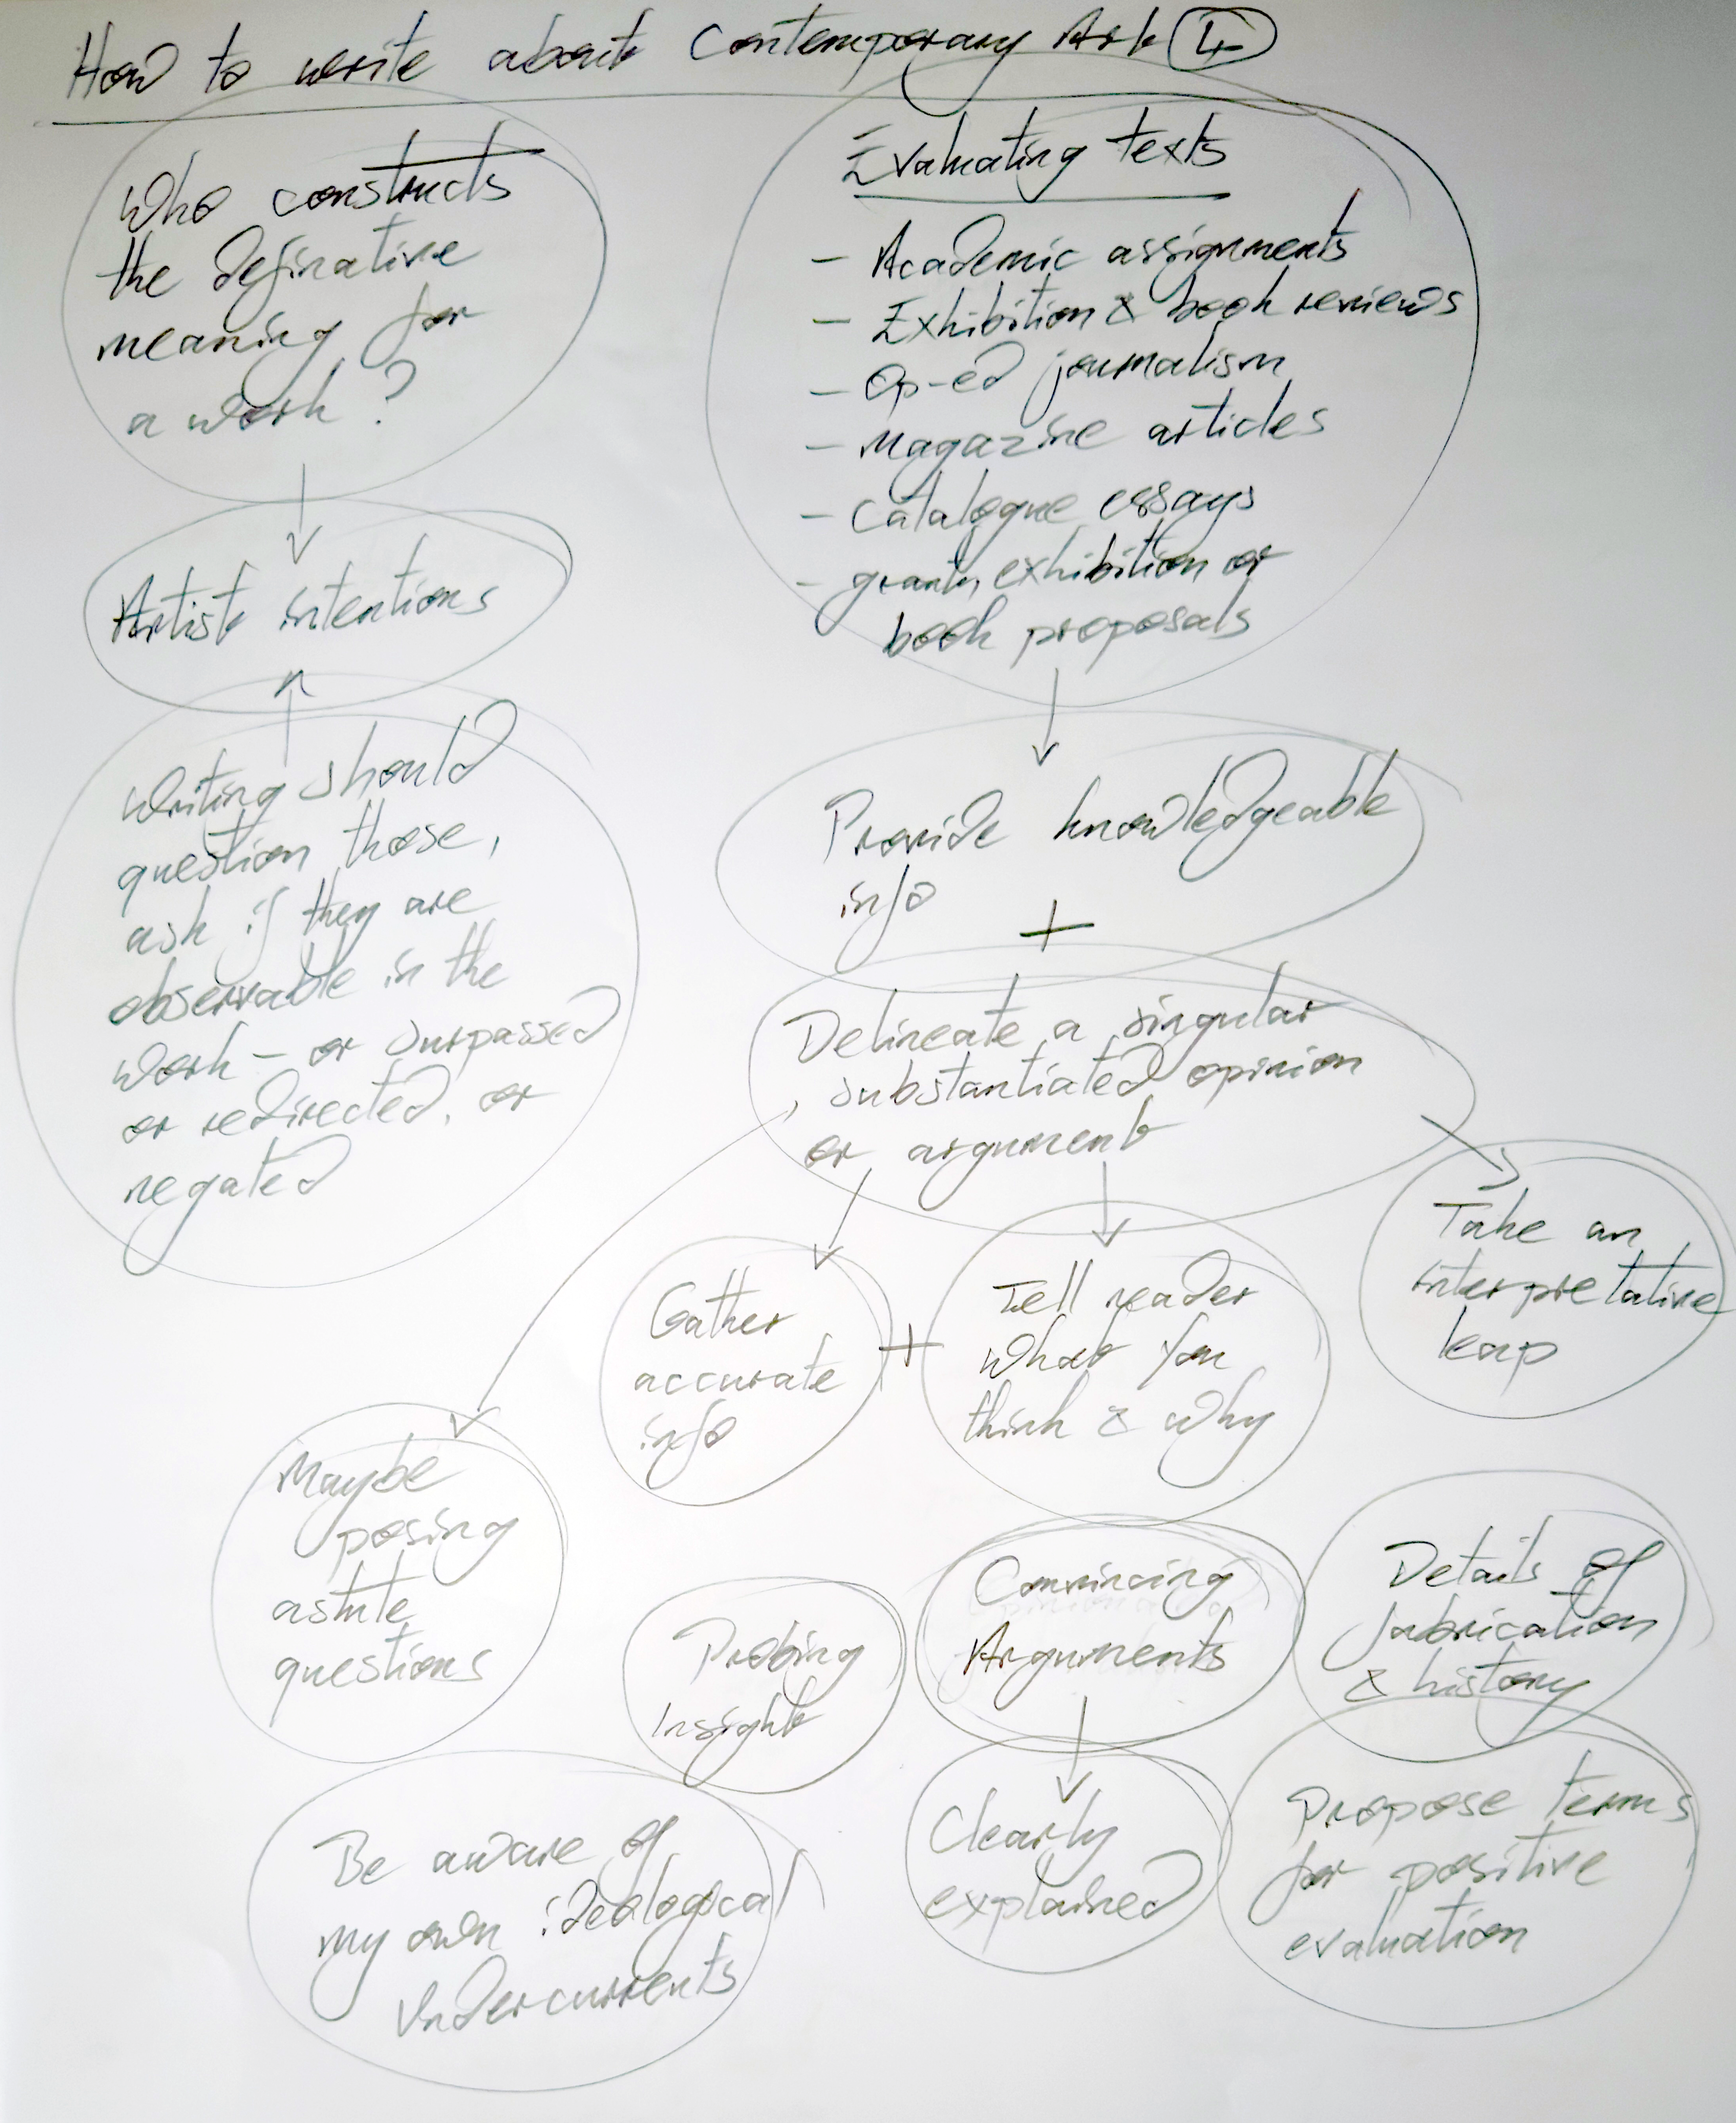 How to write about Contemporary Art 4
Who constructs
the definative
meaning for
a work?
Artist intentions
Writing should
question those,
ask if they are
observable in the
work – or surpassed
or redirected, or
negated
Evaluating texts
- Academic assignments
- Exhibition & book reviews
- Op-ed journalism
- Magazine articles
- Catalogue essays
- grants, exhibition or
book proposals
Provide knowledgeable
info
+
Delineate a singular
substantiated opinion
or argument
Take an
interpretative
leap
Gather
accurate
info
+
Tell reader
what you
think & why
Maybe
posing
astute
questions
Probing
Insight
Convincing
Arguments
Details of
fabrication
& history
Clearly
explained
Propose terms
for positive
evaluation
Be aware of
my own ideological
undercurrents